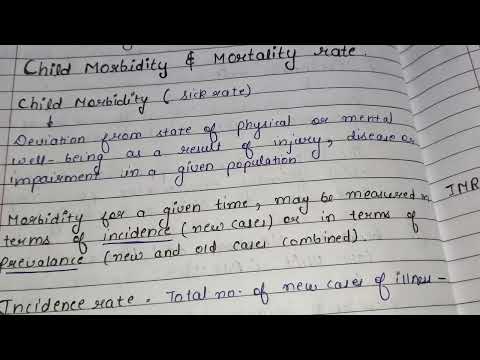 Child Morbidity & Mortality rate.
Child Morbidity (sick rate)
↓
Deviation from state of physical or mental
well-being as a result of injury, disease or
impairment in a given population
Morbidity for a given time, may be measured in
terms of incidence (new cases) or in terms of
Prevalance (new and old cases combined).
Incidence rate = Total no. of new cases of illness -
IMR